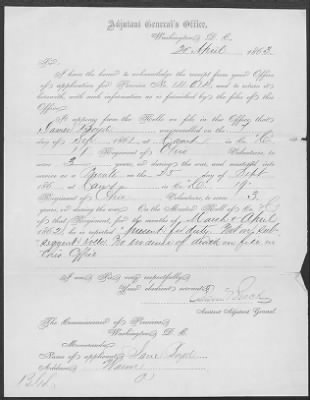 Adjutant General's Office,
Washington, D. C.
20 April 1863.
Sir,
I have the honor to acknowledge the receipt from your Office
of application for Pension No. and to return it
herewith, with such information as is furnished by the files of this
Office.
It appears from the Rolls on file in this Office, that
James Boyd was enrolled on the
day of Sept 1861, at Camp in Co.
19 Regiment of Ohio Volunteers, to
serve 3 years, or during the war, and mustered into
service as a Private on the 25 day of Sept
186 , at Camp in Co. 19
Regiment of Ohio Volunteers, to serve 3
years, or during the war. On the Muster Roll of Co.
of that Regiment, for the months of March & April
1862, he is reported "present for duty. Not on sub-
sequent rolls. No evidence of death on file in
this Office
I am, Sir, very respectfully,
Your obedient servant,
Assistant Adjutant General.
The Commissioner of Pensions,
Washington, D. C.
Memoranda:
Name of applicant, Jane Boyd
Address,